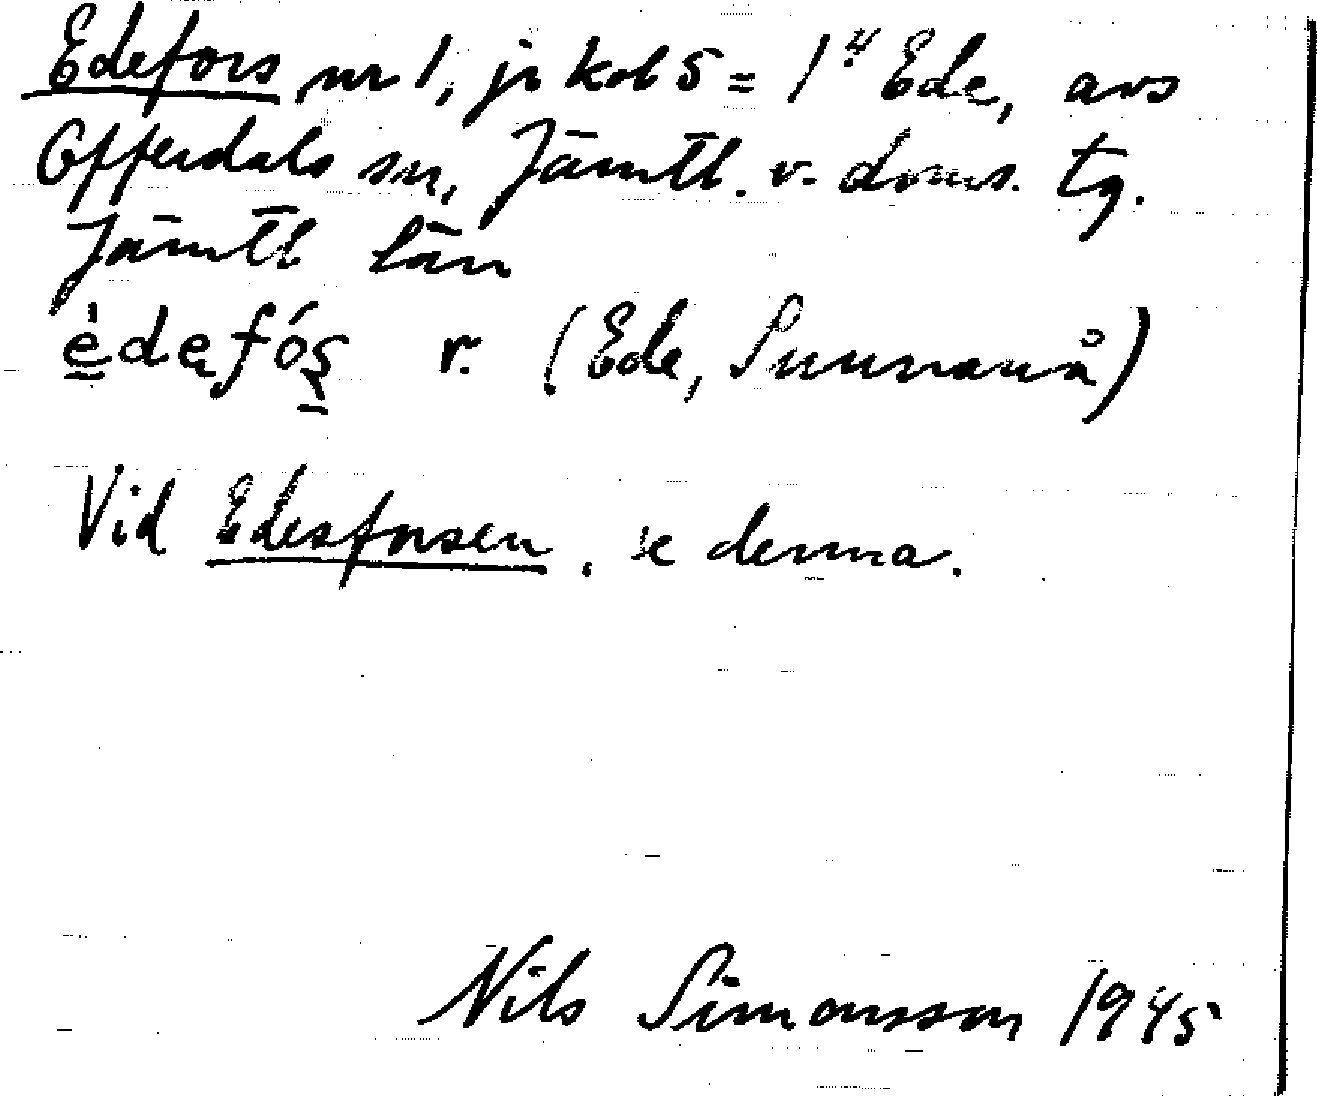 Edefors nr 1, jr kol 5 = 1⁴ Ede, avs
Offerdals sn, Jämtl. v. doms. tg.
Jämtl län
èdefós̩ r. (Ede, Sunnanå)
Vid Edesforsen, se denna.
Nils Simonsson 1945